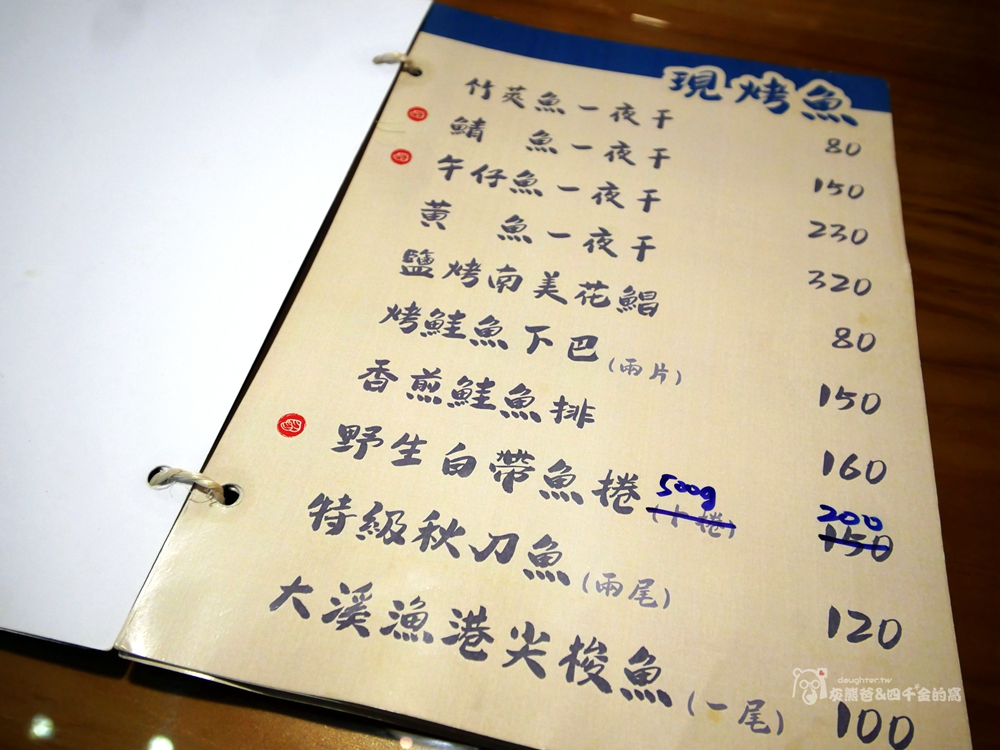 現烤魚
竹莢魚一夜干 80
鯖 魚一夜干 150
午仔魚一夜干 230
黃 魚一夜干 320
鹽烤南美花鯧 80
烤鮭魚下巴(兩片) 150
香煎鮭魚排 160
野生白帶魚捲 500g 200
150
特級秋刀魚(兩尾) 120
大溪漁港尖梭魚(一尾) 100
daughter.tw
灰熊爸&四千金的窩